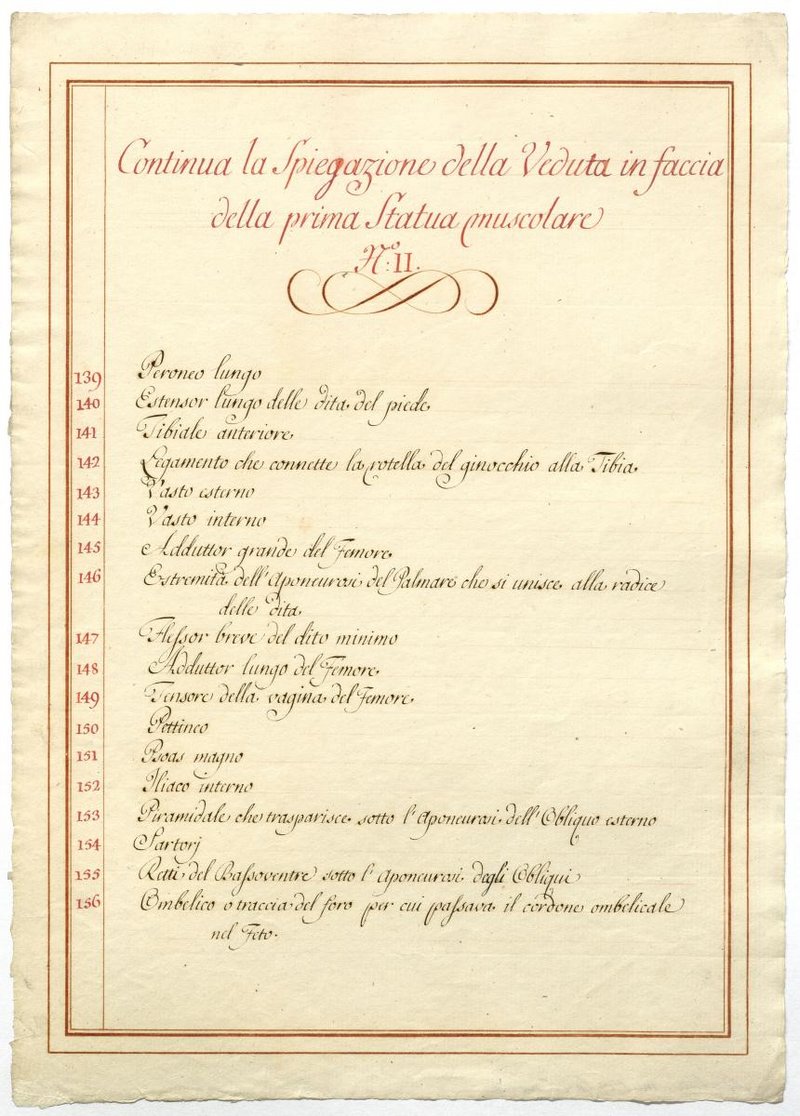 Continua la Spiegazione della Veduta in faccia
della prima Statua muscolare
N.º II.
139 Peroneo lungo
140 Estensor lungo delle dita del piede
141 Tibiale anteriore
142 Legamento che connette la rotella del ginocchio alla Tibia
143 Vasto esterno
144 Vasto interno
145 Adduttor grande del Femore
146 Estremità dell'Aponeurosi del Palmare che si unisce alla radice
delle dita
147 Flessor breve del dito minimo
148 Adduttor lungo del Femore
149 Tensore della vagina del Femore
150 Pettineo
151 Psoas magno
152 Iliaco interno
153 Piramidale che trasparisce sotto l'Aponeurosi dell'Obliquo esterno
154 Sartorj
155 Retti del Bassoventre sotto l'Aponeurosi degli Obliqui
156 Ombelico o traccia del foro per cui passava il cordone ombelicale
nel Feto.